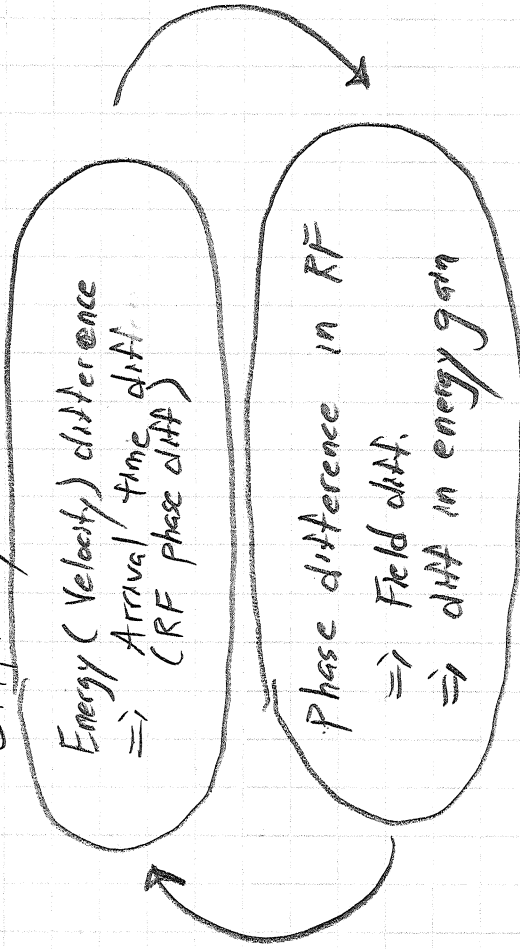 Energy (Velocity) difference
⇒ Arrival time diff.
(RF phase diff)
Phase difference in RF
⇒ Field diff.
⇒ diff in energy gain